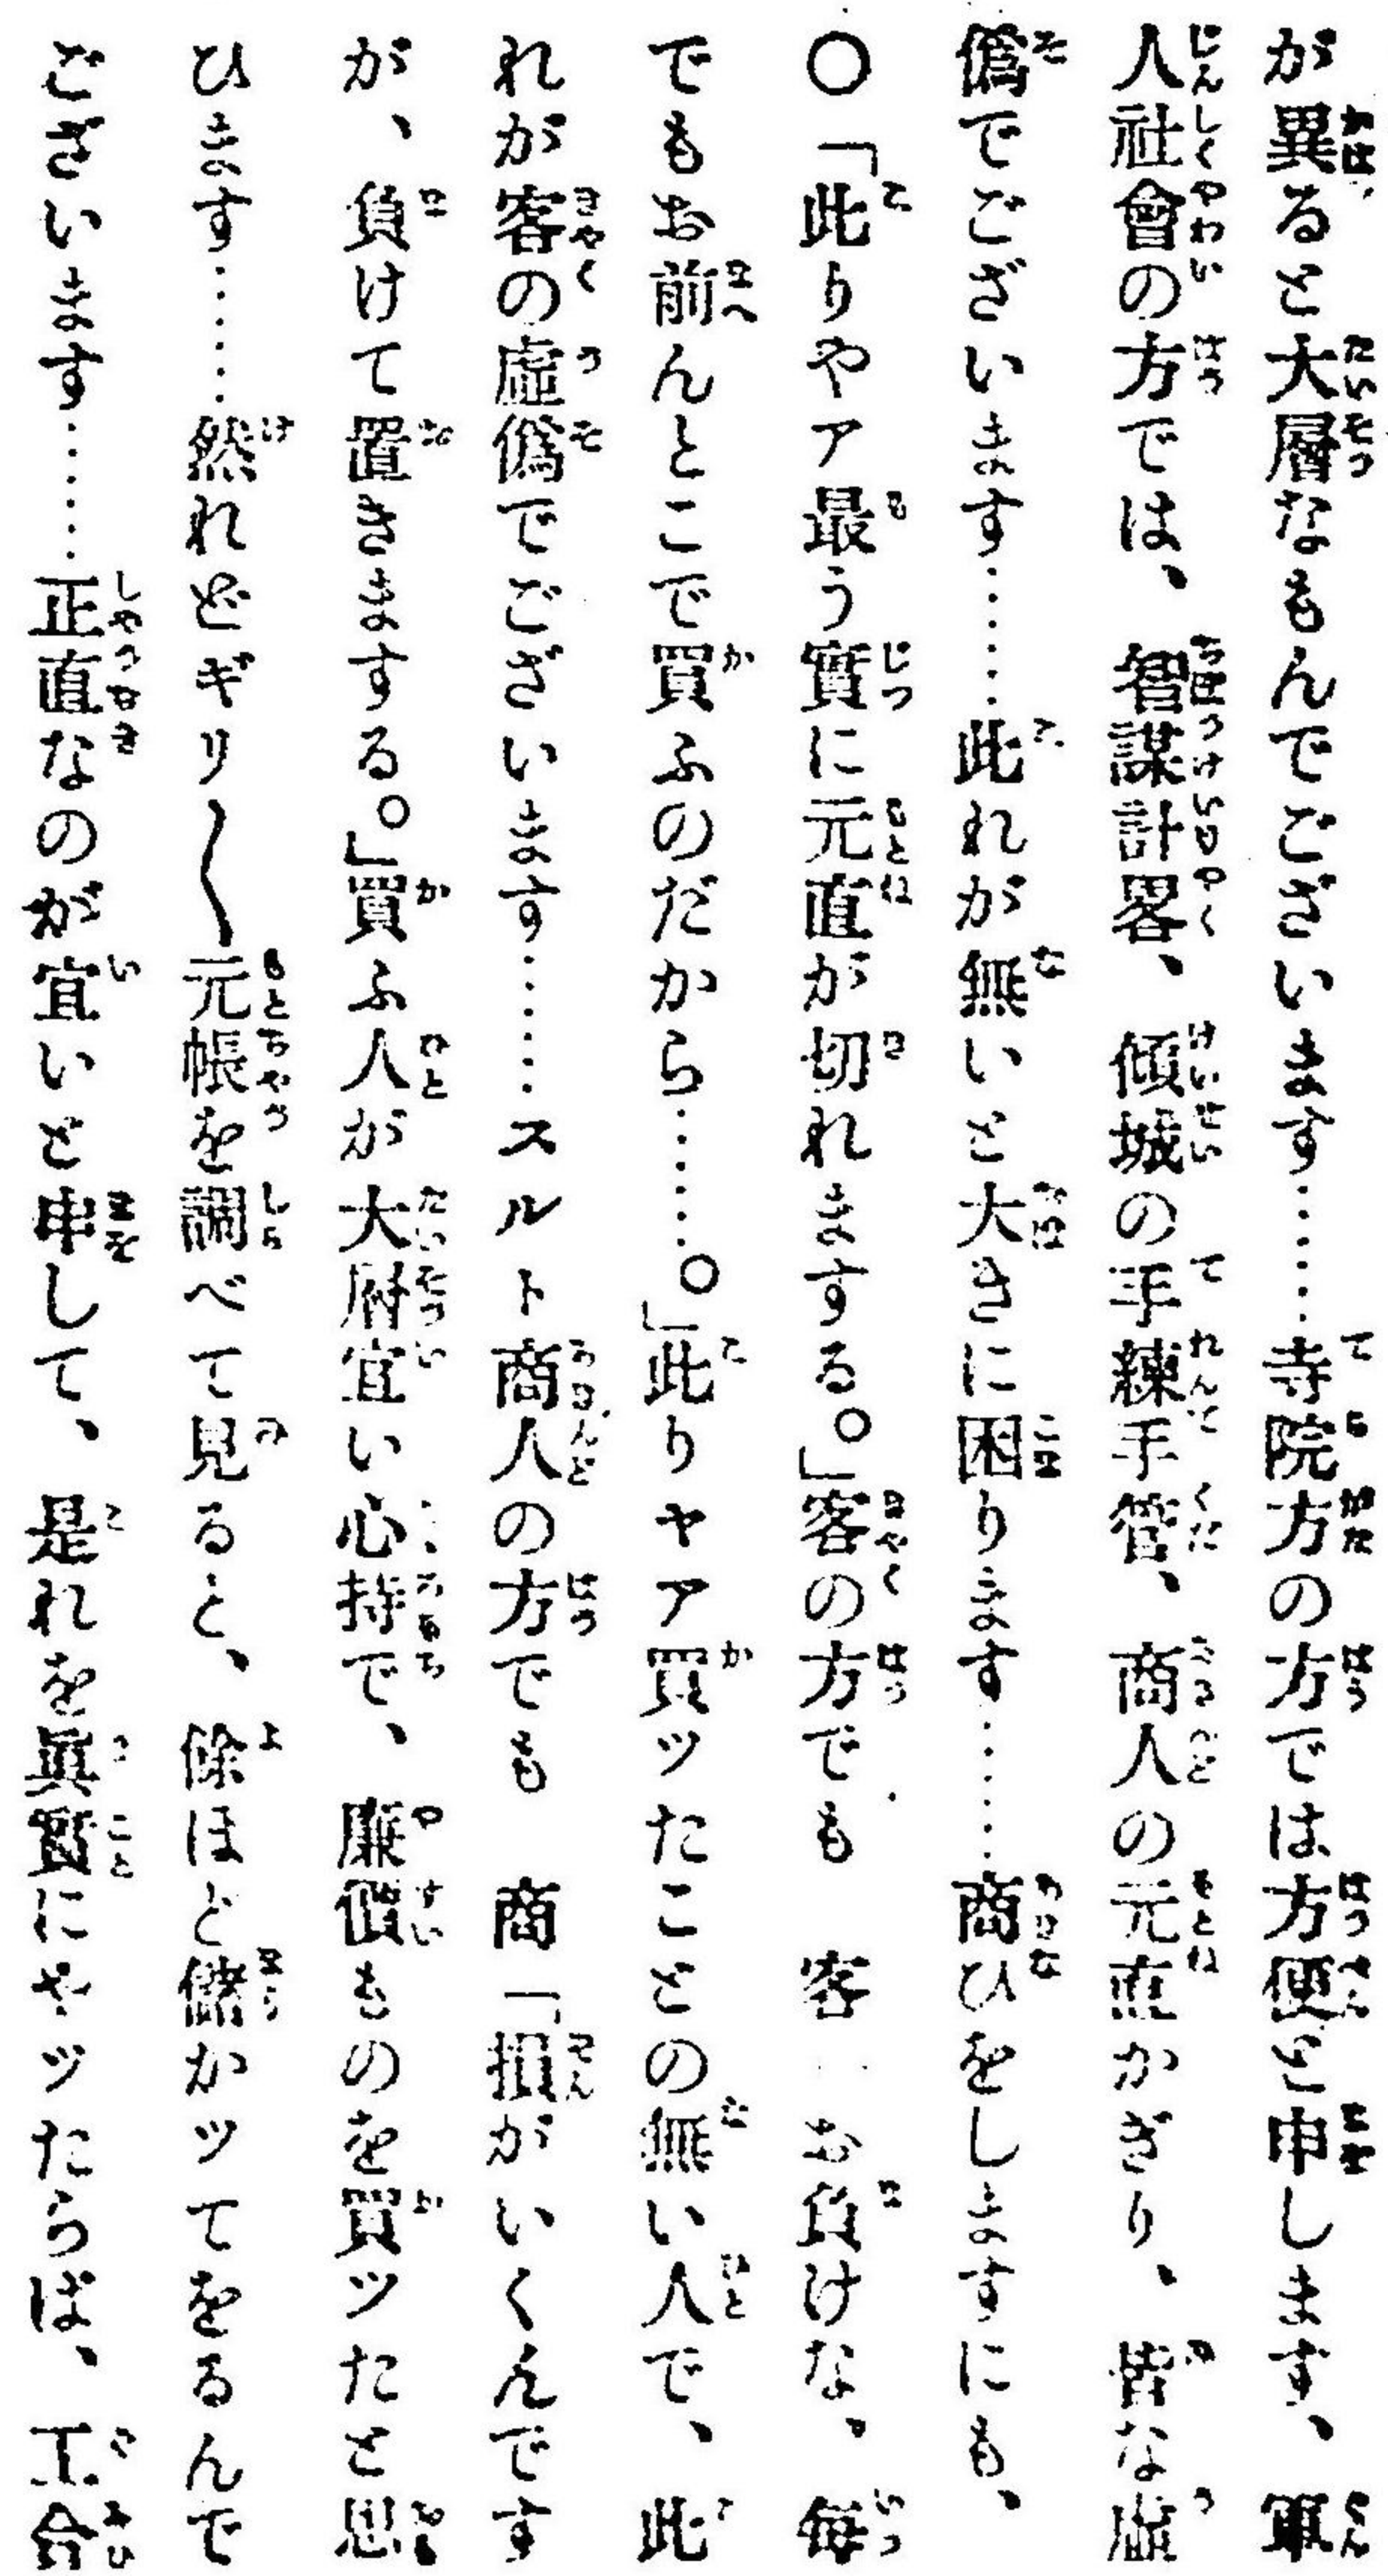 が異ると大層なもんでございます………寺院方の方では方便と申します、軍
人社會の方では、智謀計畧、傾城の手練手管、商人の元直かぎり、皆な虛
僞でございます………此れが無いと大きに困ります………商ひをしますにも、
〇「此りやア最う實に元直が切れまする。」客の方でも　客　お負けな、毎
でもお前んとこで買ふのだから………。」此りヤア買ッたことの無い人で、此
れが客の虛僞でございます………スルト商人の方でも　商「損がいくんです
が、負けて置きまする。」買ふ人が大層宜い心持で、廉價ものを買ッたと思
ひます………然れどギリ〳〵元帳を調べて見ると、餘ほど儲かッてをるんで
ございます………正直なのが宜いと申して、是れを眞實にやッたらば、工合